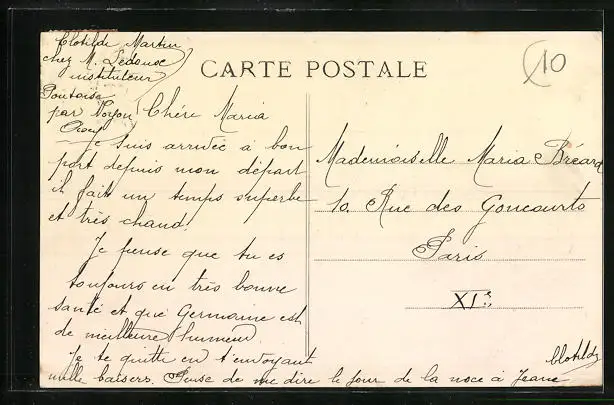 Clotilde Martin
chez M. Ledouse
instituteur
Pontoise
par Noyon
Oise
CARTE POSTALE
10
Chère Maria
Je suis arrivée à bon
port depuis mon départ
il fait un temps superbe
et très chaud.
Je pense que tu es
toujours en très bonne
santé et que Germaine est
de meilleure humeur.
Je te quitte en t'envoyant
mille baisers. Pense de me dire le jour de la noce à Jeane
Clotilde
Mademoiselle Maria Bréard
10, Rue des Goncourts
Paris
XIe